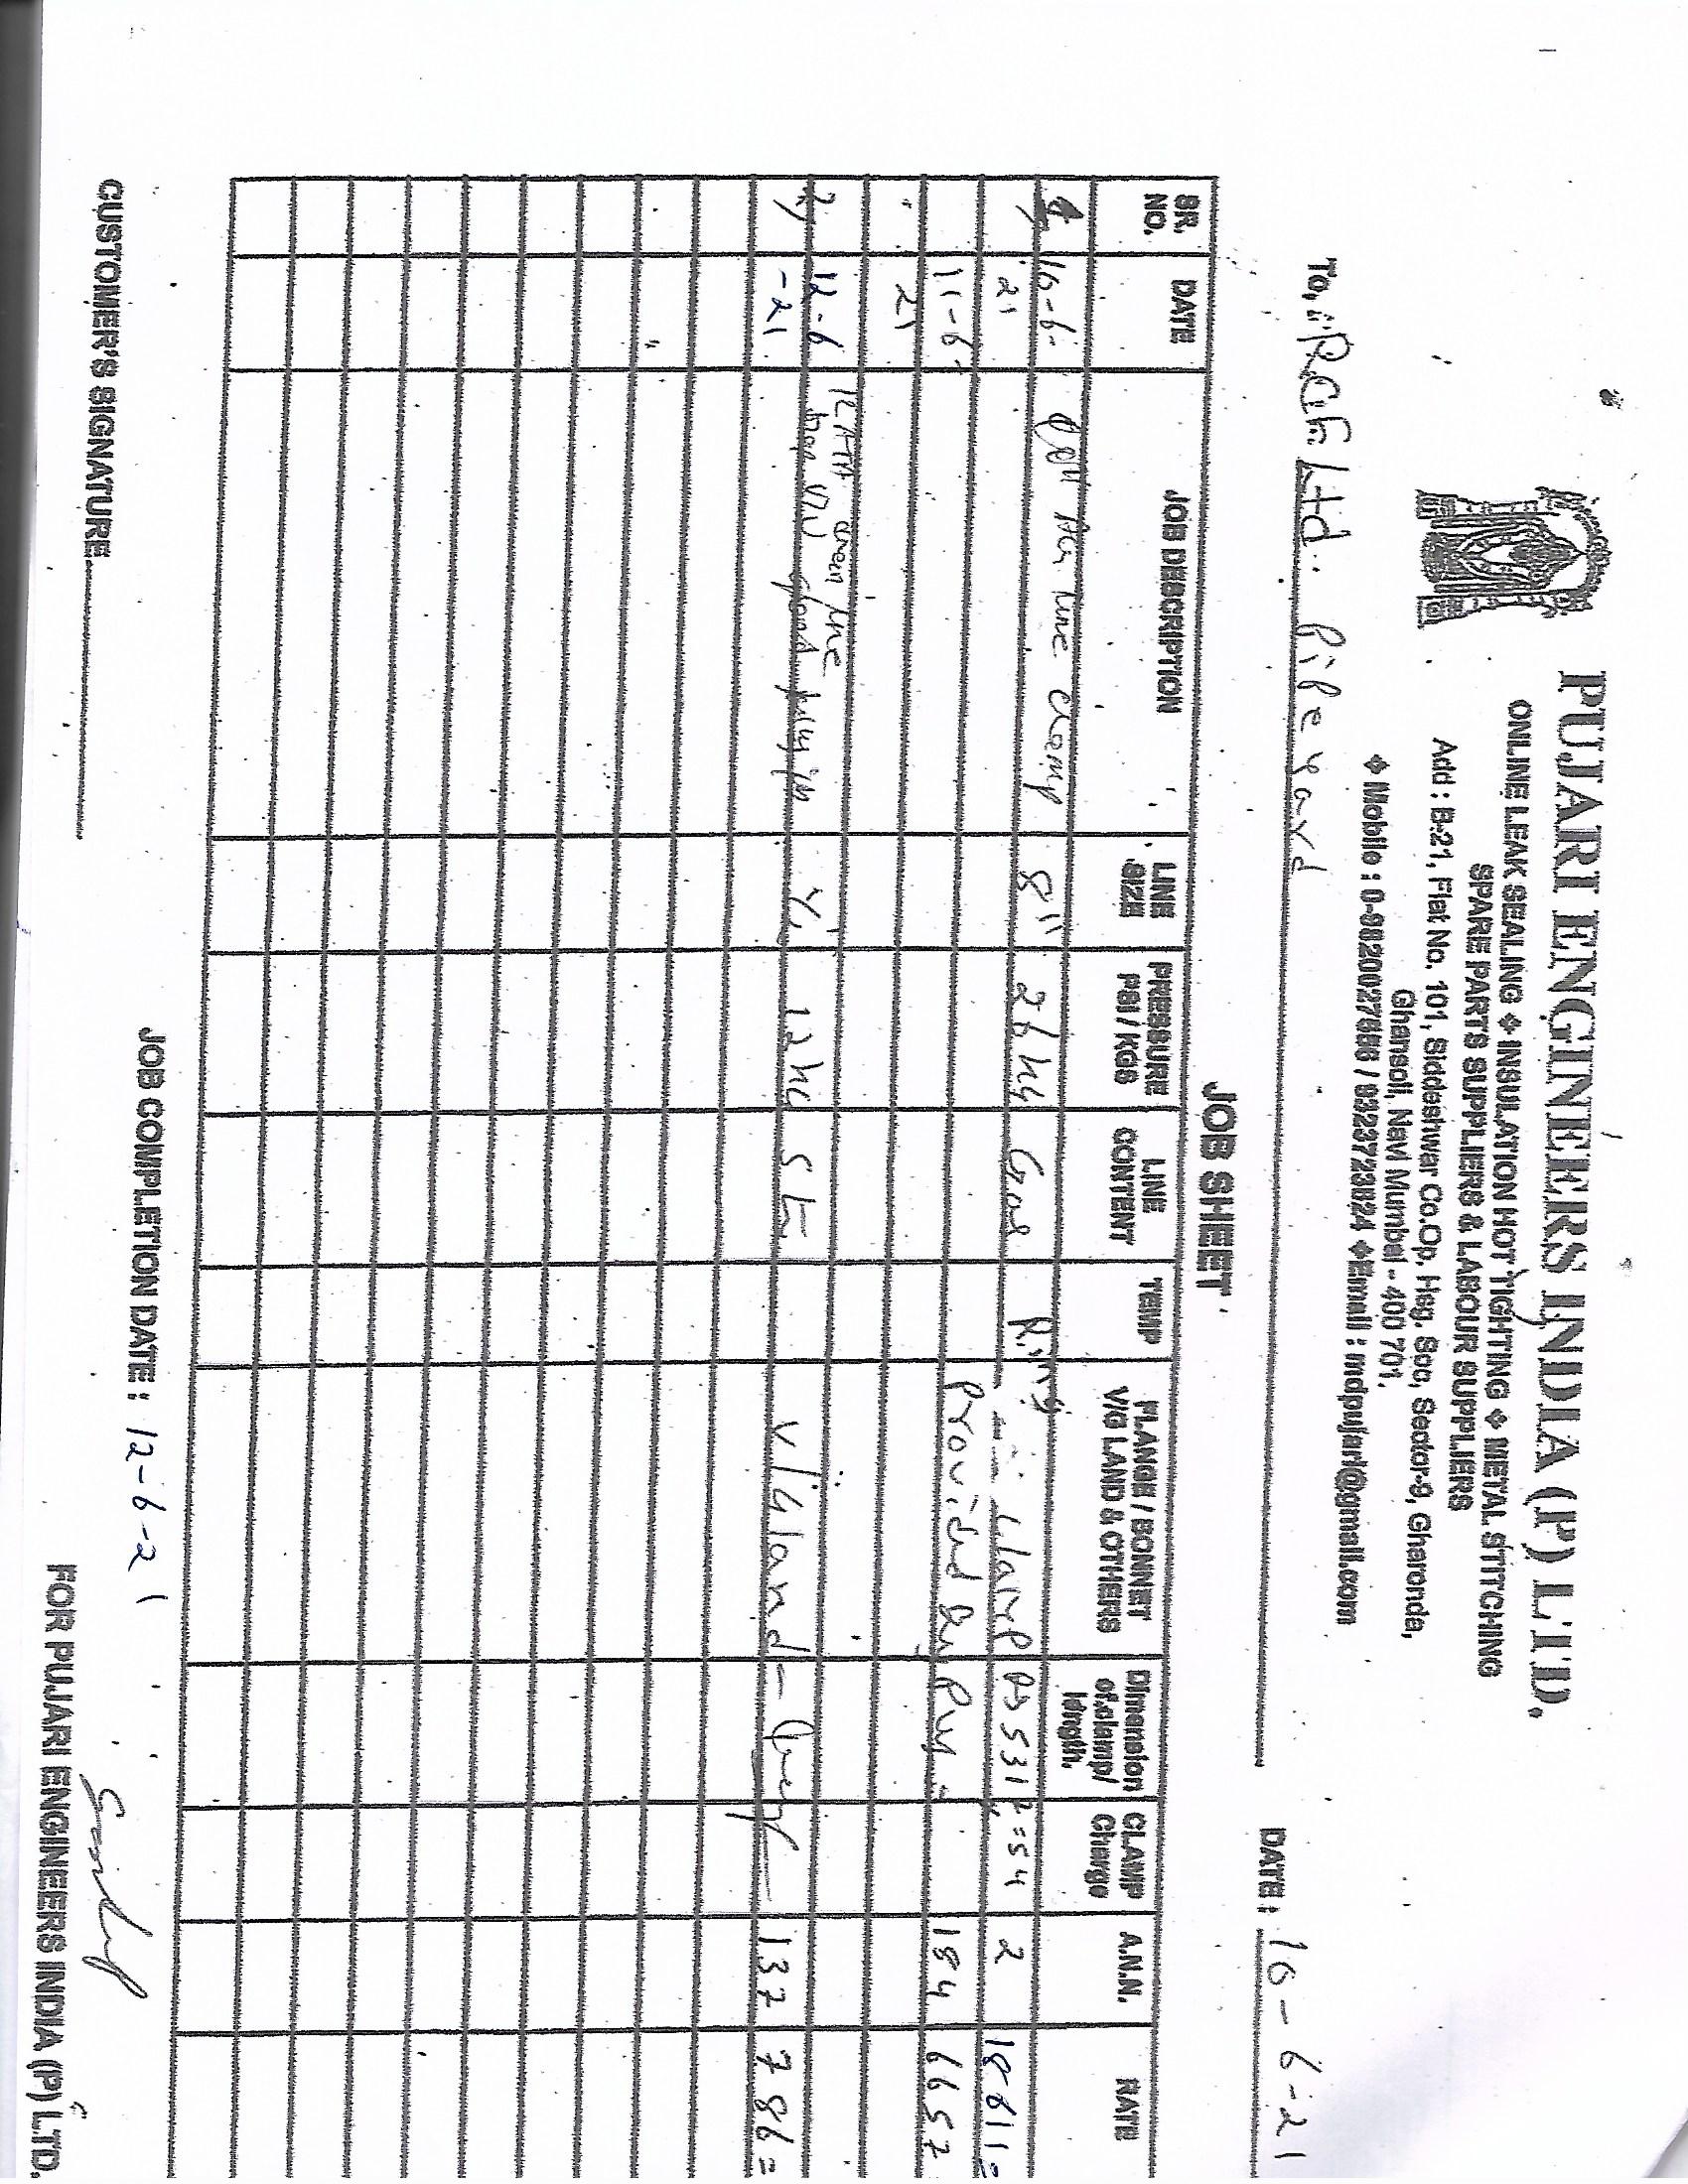 PUJARI ENGINEERS INDIA (P) LTD.
ONLINE LEAK SEALING ❖ INSULATION HOT TIGHTING ❖ METAL STITCHING
SPARE PARTS SUPPLIERS & LABOUR SUPPLIERS
Add : B-21, Flat No. 101, Siddeshwar Co.Op. Hsg. Soc, Sector-9, Gharonda,
Ghansoli, Navi Mumbai - 400 701.
❖ Mobile : 0-9820027686 / 9323723824 ❖ Email : mdpujari@gmail.com
To, RCF Ltd. Pipe yard
DATE : 10-6-21
JOB SHEET
SR. NO. DATE JOB DESCRIPTION LINE SIZE PRESSURE PSI / KGS LINE CONTENT TEMP FLANGE / BONNET V/G LAND & OTHERS Dimension of clamp/ length. CLAMP Charge A.N.N. RATE
10-6- line clamp 8" 26kg Gas Ring
21 Clamp 2
11-6- Provided By 184 6657
21
2) 12-6 line
-21 12kg V/gland 137 786=
JOB COMPLETION DATE : 12-6-21
CUSTOMER'S SIGNATURE
FOR PUJARI ENGINEERS INDIA (P) LTD.